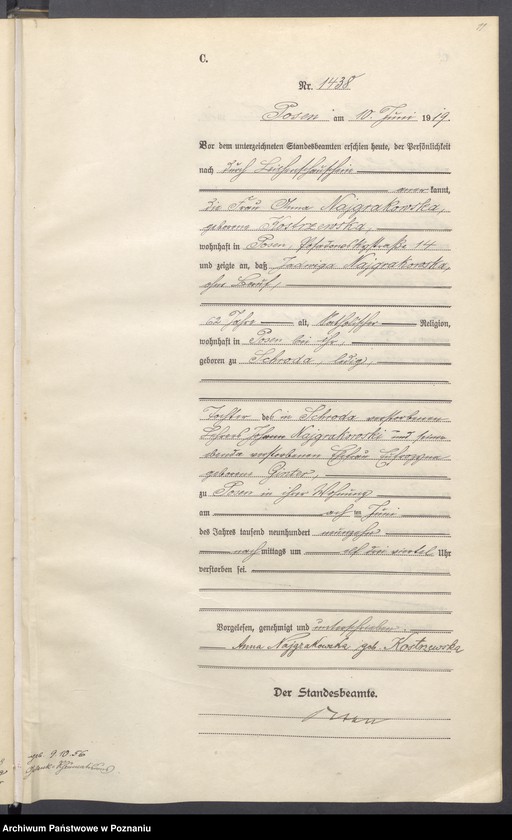 C.
Nr. 1438
Posen am 10. Juni 1919.
Vor dem unterzeichneten Standesbeamten erschien heute, der Persönlichkeit
nach durch
aner kannt,
die Frau Anna Najgrakowska,
geborene Kostrzewska,
wohnhaft in Posen, 14
und zeigte an, daß Jadwiga Najgrakowska,
ohne Beruf,
62 Jahre alt, katholischer Religion,
wohnhaft in Posen bei ihr,
geboren zu Schroda, ledig,
Tochter des in Schroda verstorbenen
Lehrers Johann Najgrakowski und seiner
ebenda verstorbenen Ehefrau
geborene Ginter,
zu Posen in ihrer Wohnung
am acht im Juni
des Jahres tausend neunhundert neunzehn
nach mittags um elf drei viertel Uhr
verstorben sei.
Vorgelesen, genehmigt und unterschrieben.
Anna Najgrakowska geb. Kostrzewska
Der Standesbeamte.
geb. 9.10.56
Archiwum Państwowe w Poznaniu